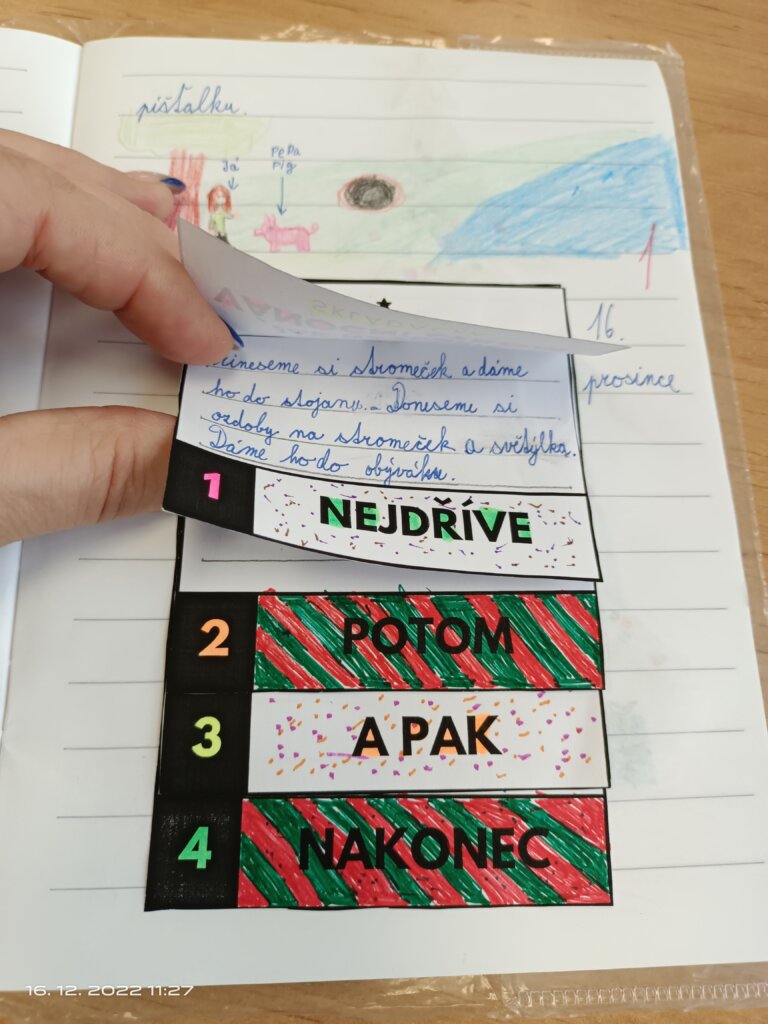 píšťalku.
Já
PEPA
PIG
1
16.
prosince
VÁNOČNÍ
SKLÁDA
Přineseme si stromeček a dáme
ho do stojanu. Doneseme si
ozdoby na stromeček a světýlka.
Dáme ho do obýváku.
1 NEJDŘÍVE
2 POTOM
3 A PAK
4 NAKONEC
16. 12. 2022 11:27